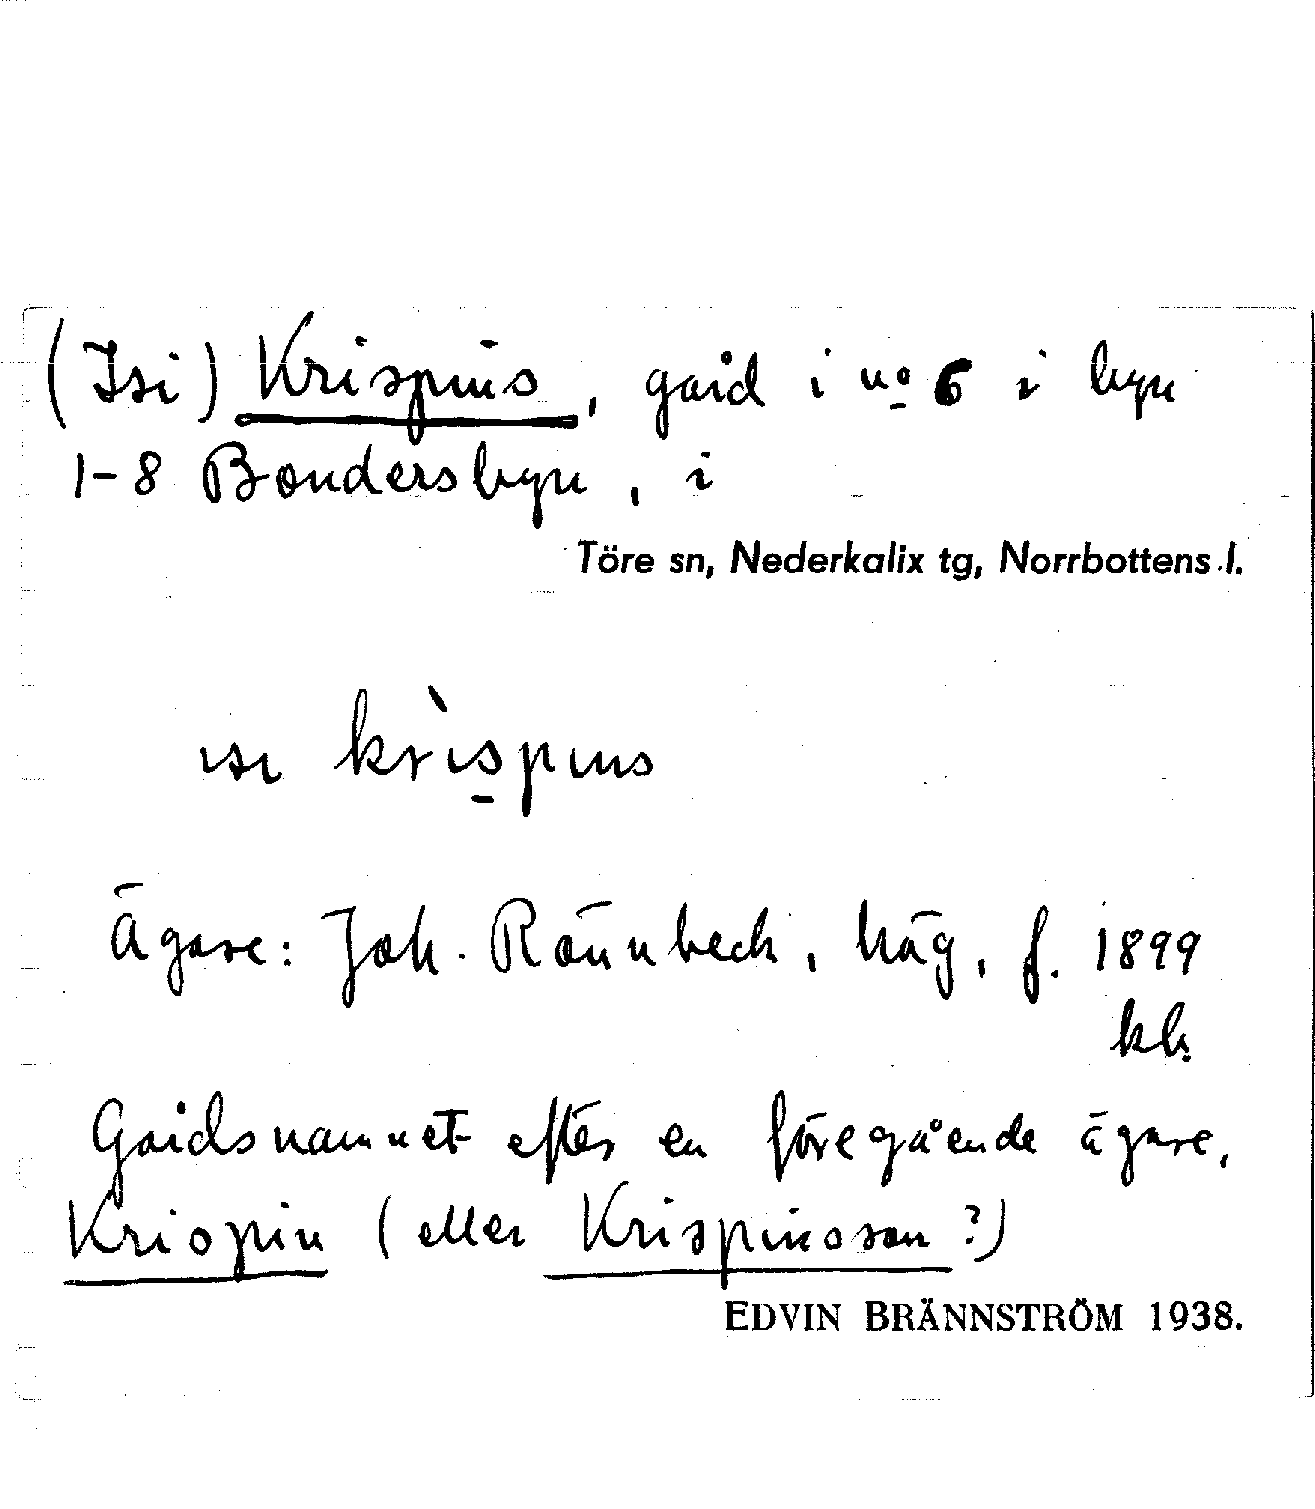 (Isi) Krispins, gård i no 6 i byn
1-8 Bondersbyn, i
Töre sn, Nederkalix tg, Norrbottens l.
ısı krìspıns
Ägare: Joh. Rönnbeck, häg, f. 1899
kb.
Gårdsnamnet efter en föregående ägare,
Krispin (eller Krispinsson?)
EDVIN BRÄNNSTRÖM 1938.